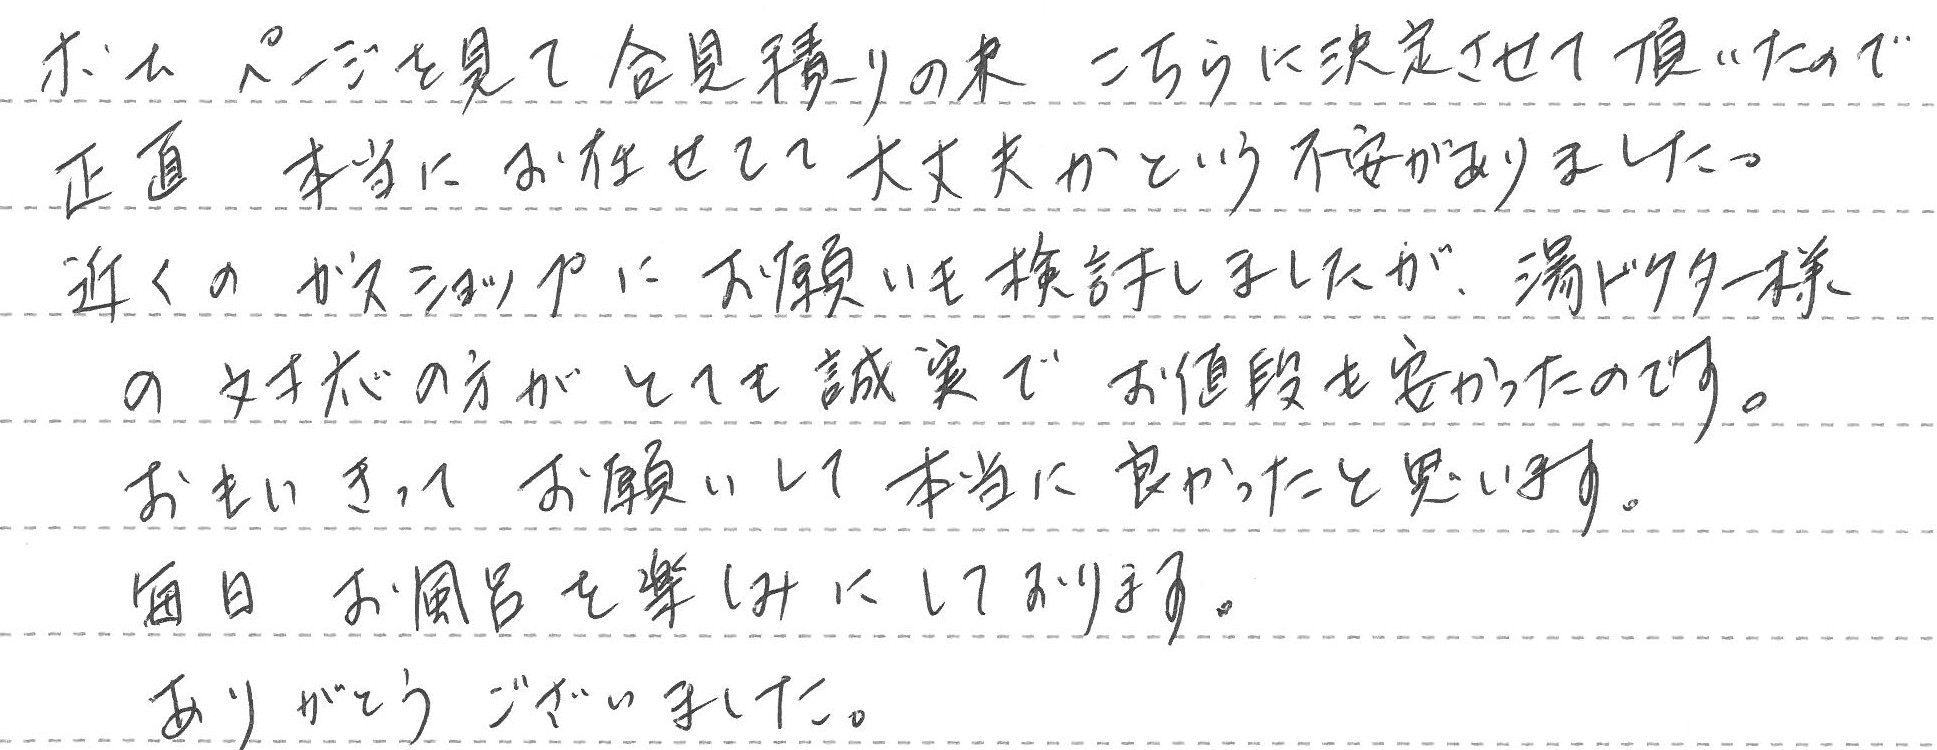 ホームページを見て合見積りの末 こちらに決定させて頂いたので
正直 本当にお任せしてて大丈夫かという不安がありました。
近くのガスショップにお願いも検討しましたが、湯ドクター様
の対応の方がとても誠実でお値段も安かったのです。
おもいきってお願いして本当に良かったと思います。
毎日 お風呂を楽しみにしております。
ありがとうございました。